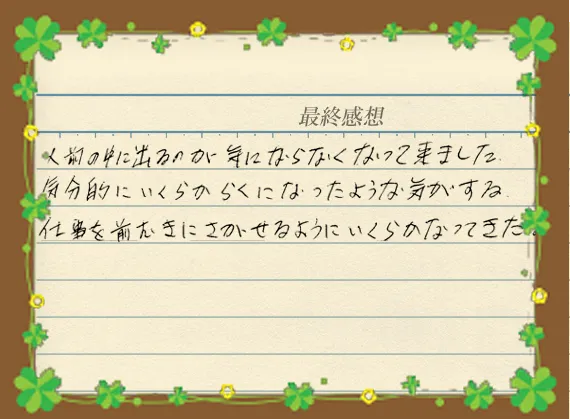 最終感想
人前の中に出るのが気にならなくなって来ました.
気分的にいくらからくになったような気がする.
仕事を前むきにさがせるようにいくらかなってきた